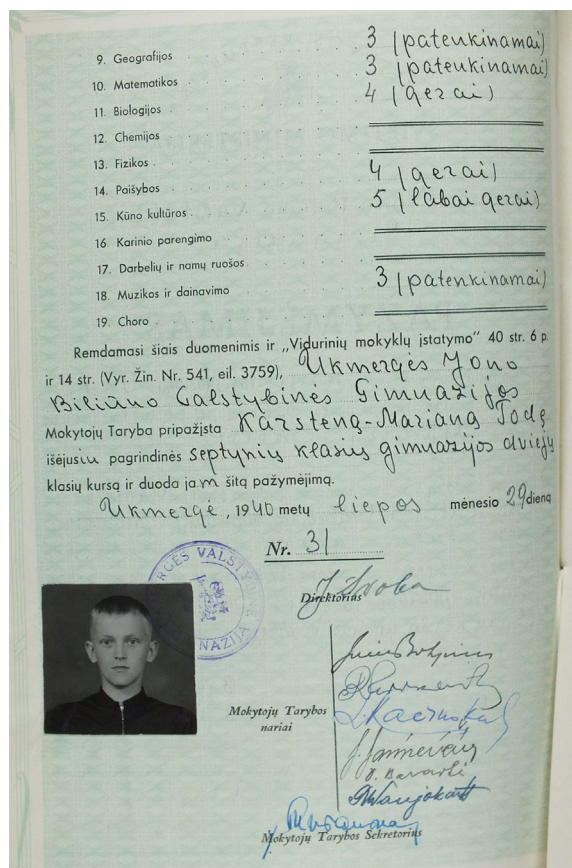 9. Geografijos 3 (patenkinamai)
10. Matematikos 3 (patenkinamai)
11. Biologijos 4 (gerai)
12. Chemijos
13. Fizikos
14. Paišybos 4 (gerai)
15. Kūno kultūros 5 (labai gerai)
16. Karinio parengimo
17. Darbelių ir namų ruošos
18. Muzikos ir dainavimo 3 (patenkinamai)
19. Choro
Remdamasi šiais duomenimis ir „Vidurinių mokyklų įstatymo" 40 str. 6 p.
ir 14 str. (Vyr. Žin. Nr. 541, eil. 3759), Ukmergės Jono
Biliūno Valstybinės Gimnazijos
Mokytojų Taryba pripažįsta Karsteną-Marianą Todę
išėjusiu pagrindinės septynių klasių gimnazijos dviejų
klasių kursą ir duoda jam šitą pažymėjimą.
Ukmergė, 1940 metų liepos mėnesio 29 dieną
Nr. 31
Direktorius
Mokytojų Tarybos
nariai
Mokytojų Tarybos Sekretorius